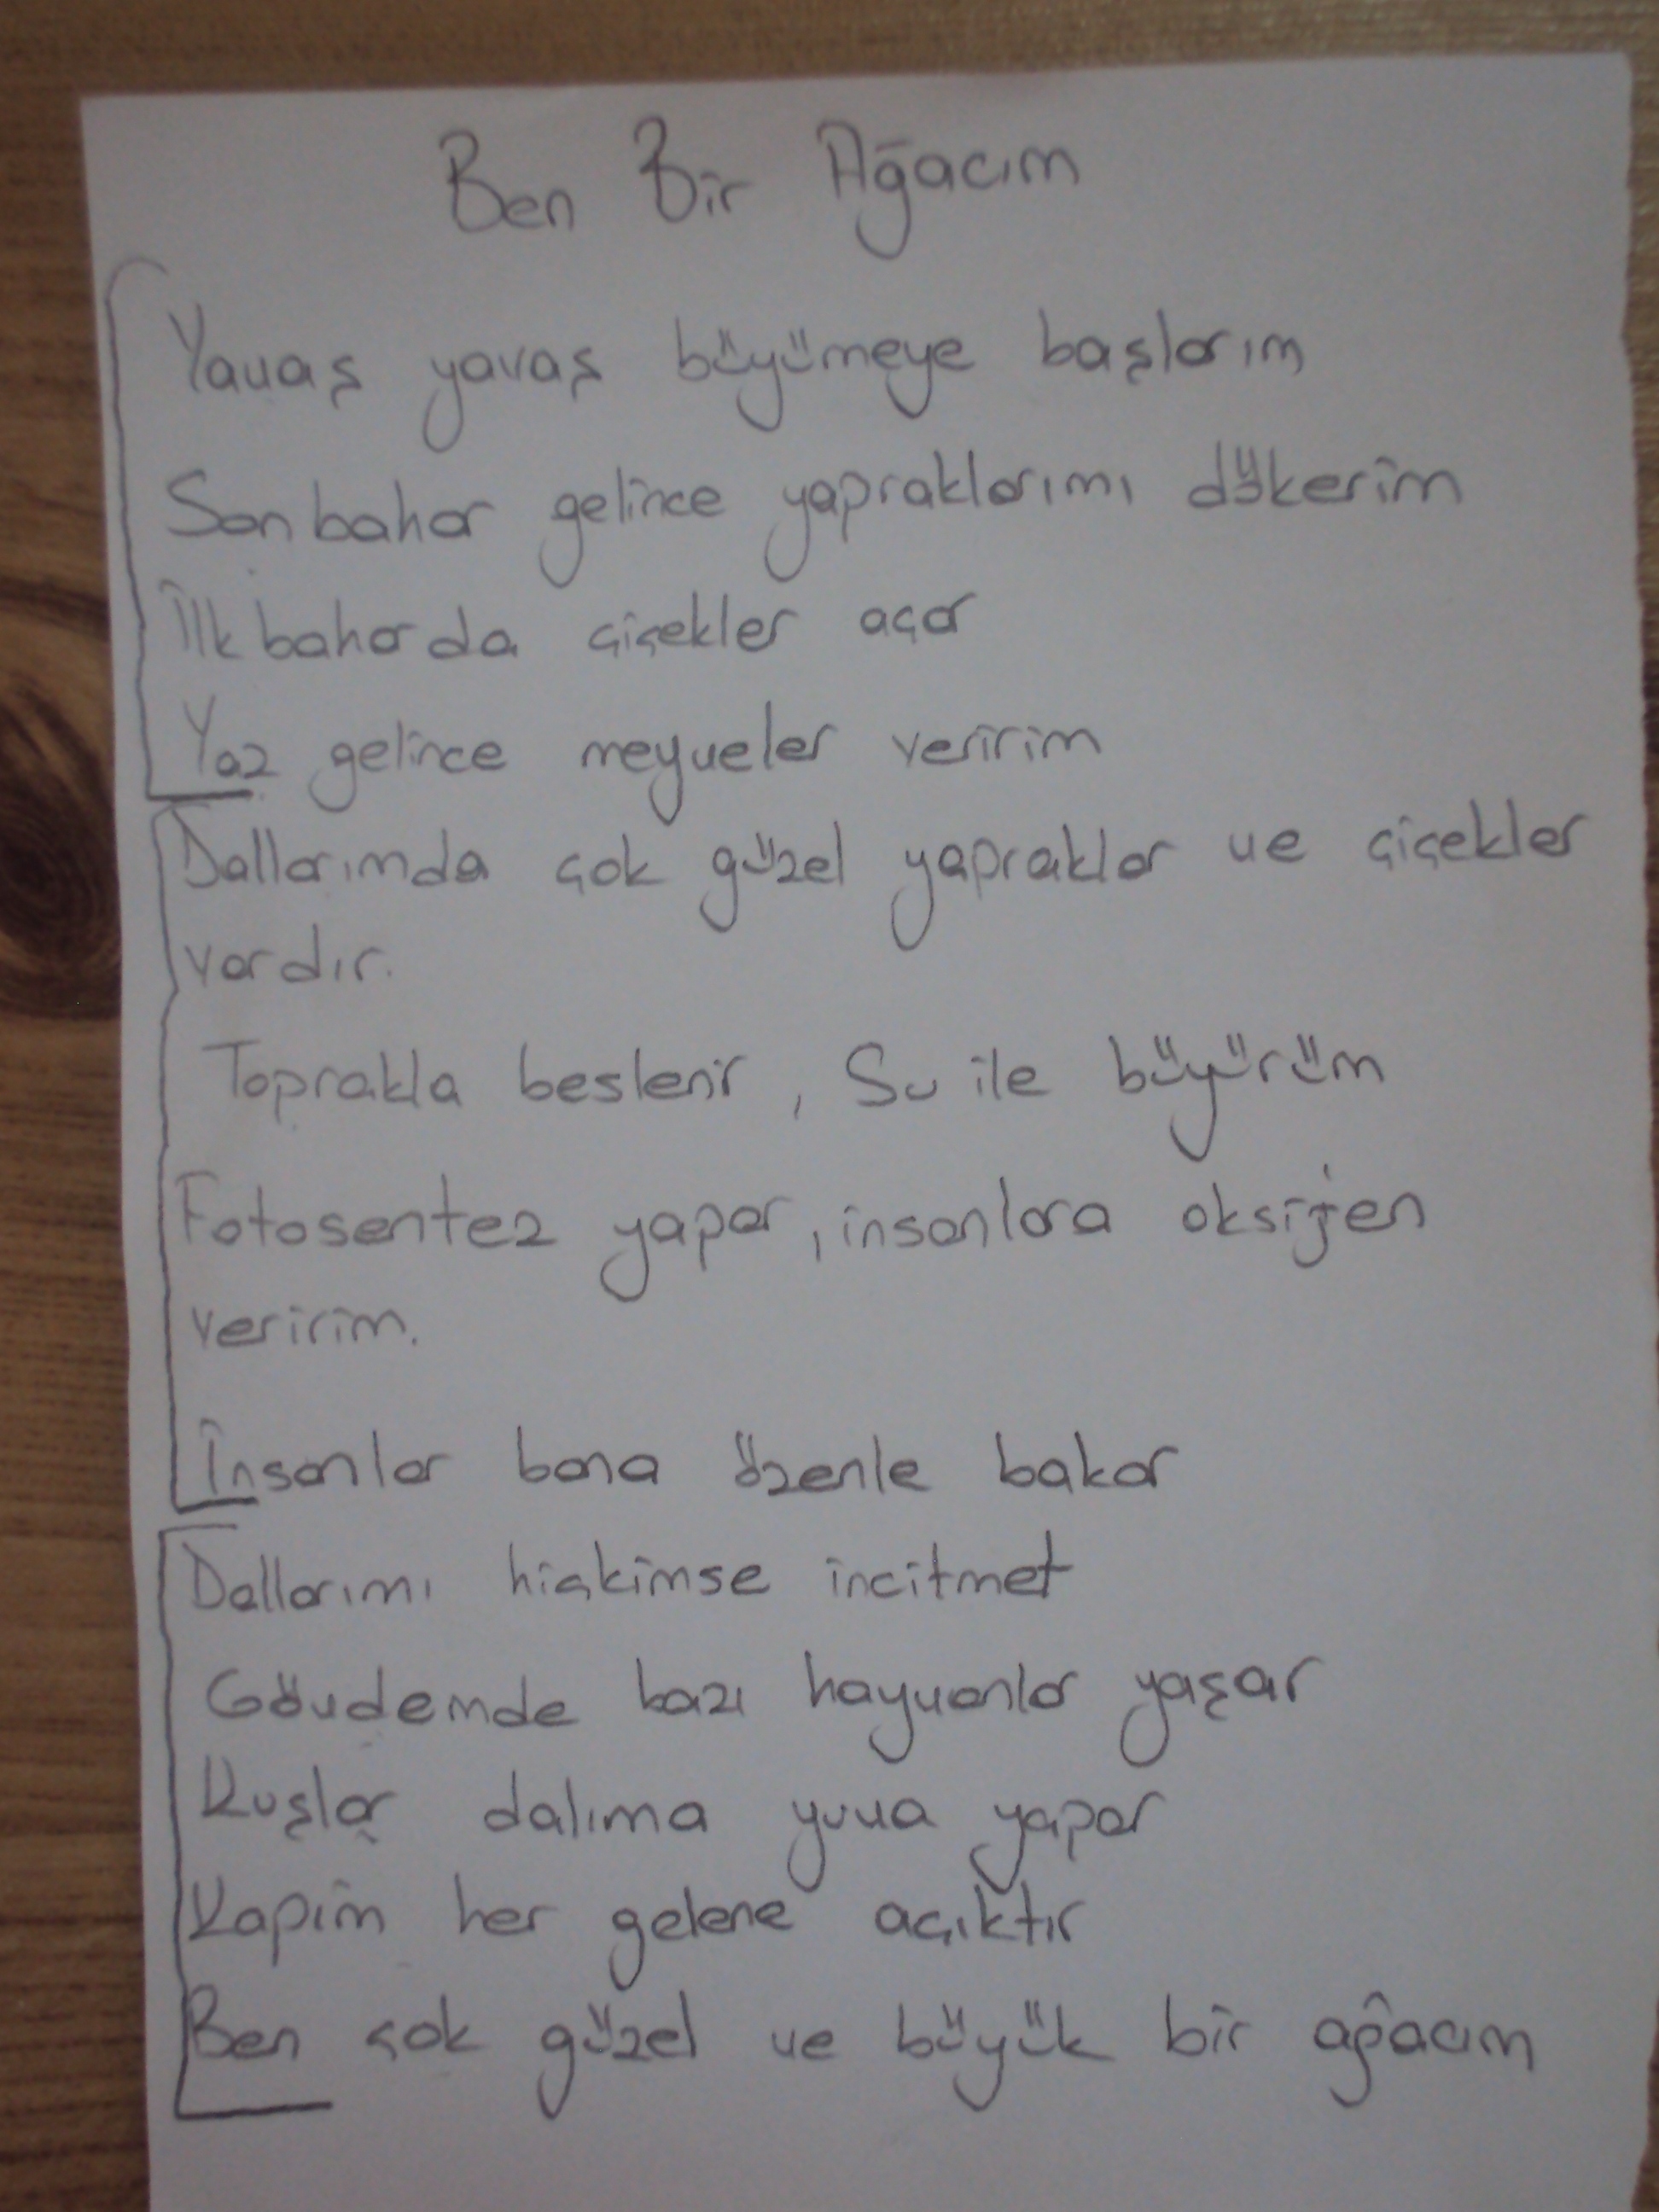 Ben Bir Ağacım
Yavaş yavaş büyümeye başlarım
Sonbahar gelince yapraklarımı dökerim
İlkbaharda çiçekler açar
Yaz gelince meyveler veririm
Dallarımda çok güzel yapraklar ve çiçekler
vardır.
Toprakla beslenir, Su ile büyürüm
Fotosentez yapar, insanlara oksijen
veririm.
İnsanlar bana özenle bakar
Dallarımı hiçkimse incitmet
Gövdemde bazı hayvanlar yaşar
Kuşlar dalıma yuva yapar
Kapim her gelene açıktır
Ben çok güzel ve büyük bir ağacım